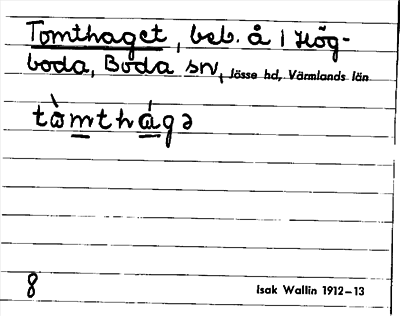 Tomthaget, beb. å 1 Hög-
boda, Boda sn, Jösse hd, Värmlands län
tòmthágə
8
Isak Wallin 1912–13